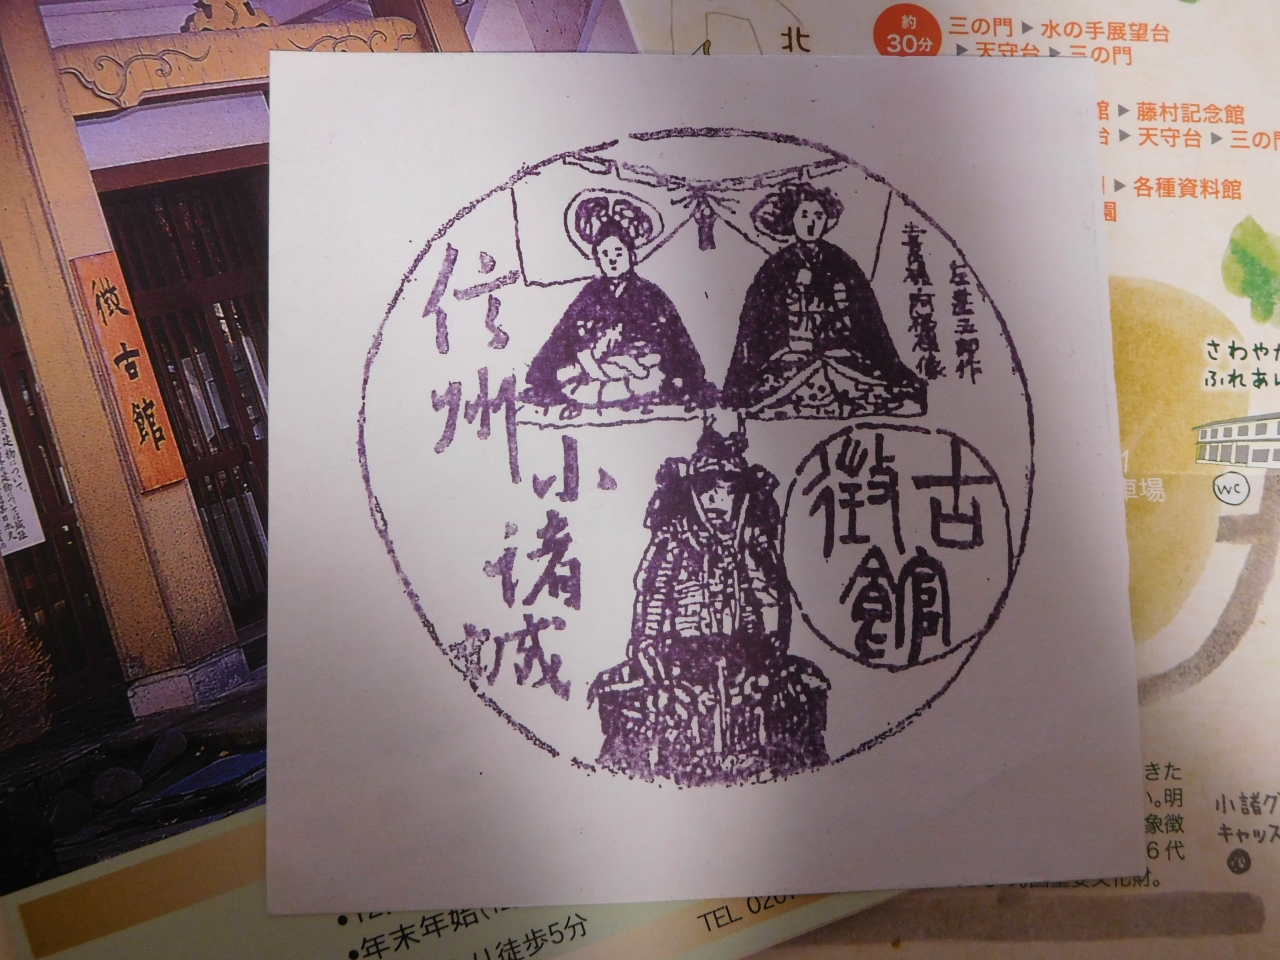 信州
小諸城
左甚五郎作
古
徴
館
徴古館
北
約
30分
三の門▶水の手展望台
▶天守台▶三の門
館▶藤村記念館
台▶天守台▶三の門
▶各種資料館
園
さわやか
ふれあい
WC
車場
きた
い。明
象徴
6代
国重要文化財。
小諸グ
キャッス
•年末年始
り徒歩5分
TEL 0267